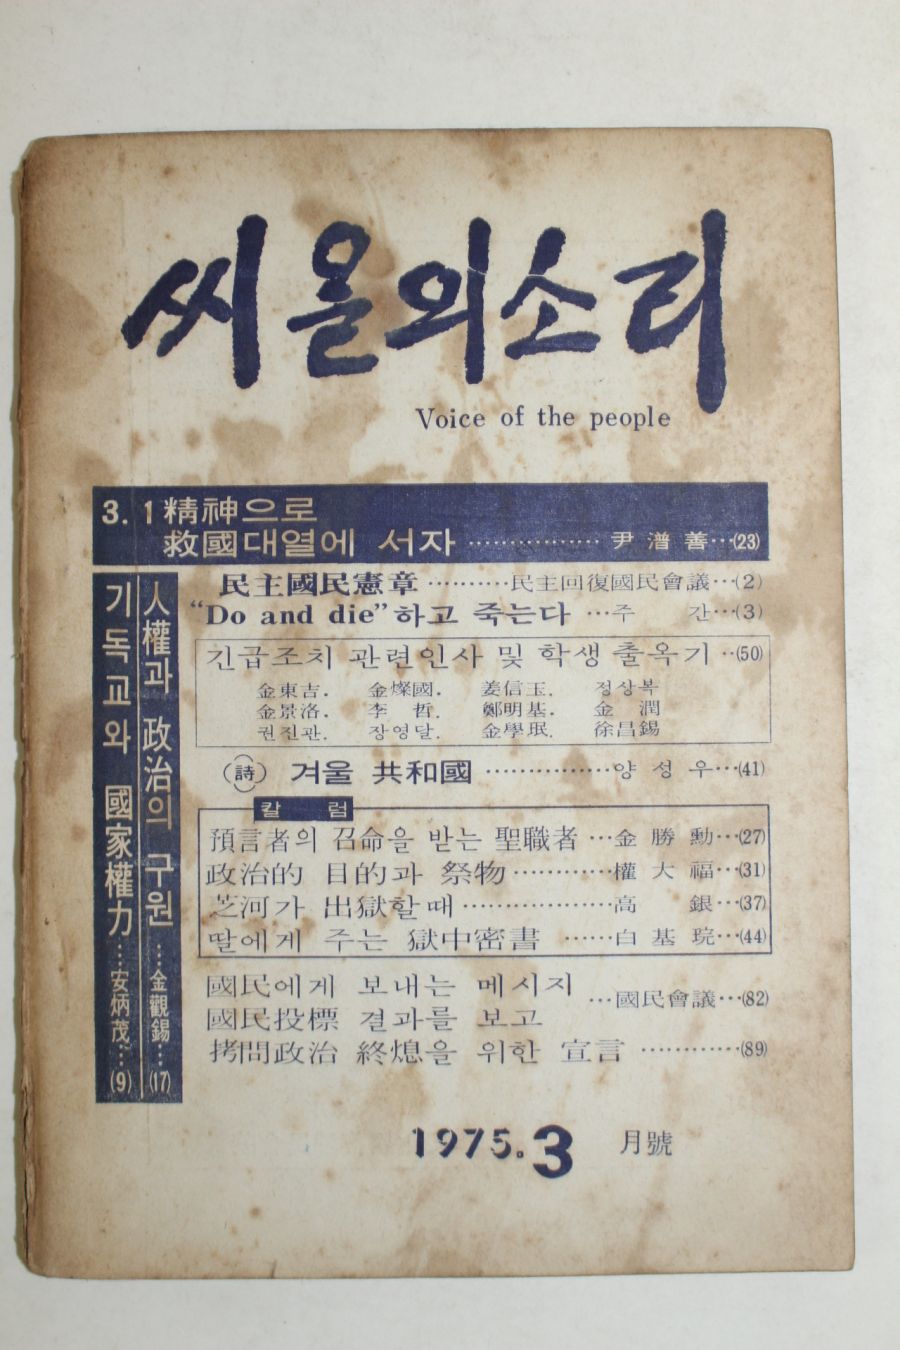 씨올의소리
Voice of the people
3. 1精神으로
救國대열에 서자 ················ 尹潽善···(23)
기독교와 國家權力····安炳茂····(9)
人權과 政治의 구원 ····金觀錫···(17)
民主國民憲章 ··········民主回復國民會議···(2)
“Do and die”하고 죽는다 ···주 간···(3)
긴급조치 관련인사 및 학생 출옥기 ··(50)
金東吉. 金燦國. 姜信玉. 정상복
金景洛. 李 哲. 鄭明基. 金 潤
권진관. 장영달. 金學珉. 徐昌錫
(詩) 겨울 共和國 ···············양성우···(41)
칼 럼
預言者의 召命을 받는 聖職者 ···金勝勳···(27)
政治的 目的과 祭物 ············權大福···(31)
芝河가 出獄할때 ·················高 銀···(37)
딸에게 주는 獄中密書 ······白基琓···(44)
國民에게 보내는 메시지
國民投標 결과를 보고 ···國民會議···(82)
拷問政治 終熄을 위한 宣言 ············(89)
1975. 3 月號